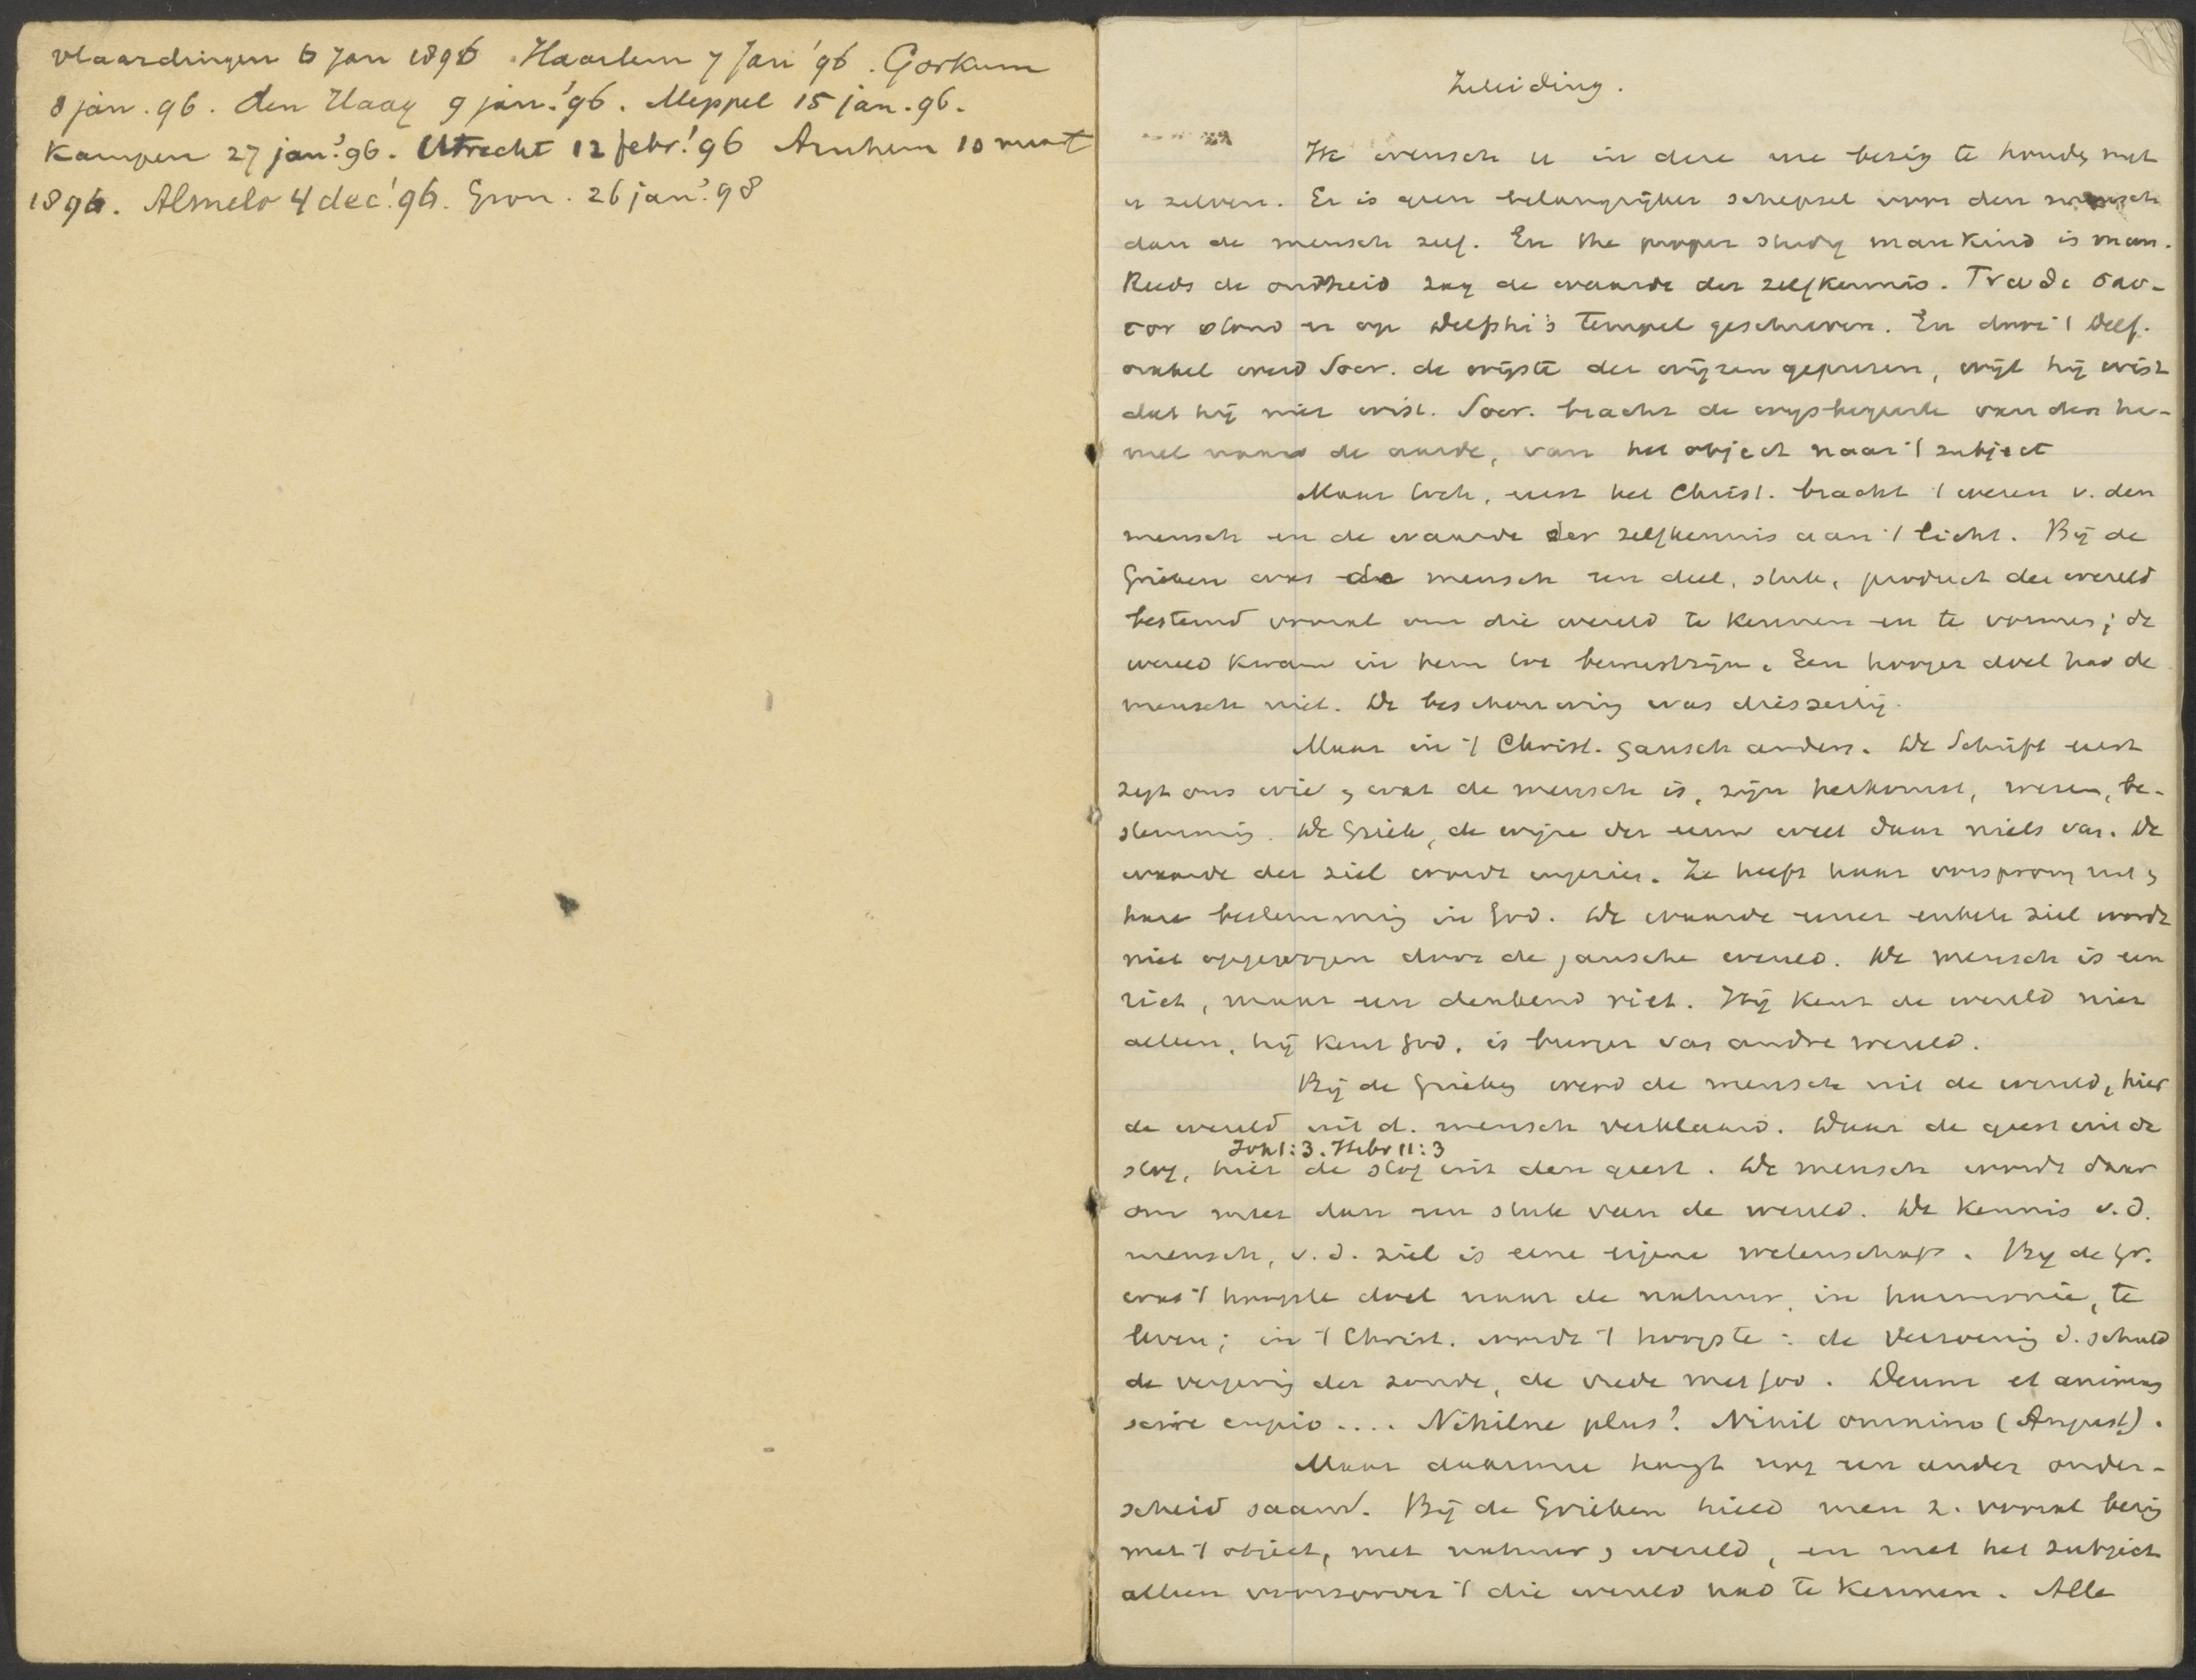 Vlaardingen 6 Jan 1896. Haarlem 7 Jan '96. Gorkum
8 jan. 96. den Haag 9 jan. '96. Meppel 15 jan. 96.
Kampen 27 jan. '96. Utrecht 12 febr. '96 Arnhem 10 maart
1896. Almelo 4 dec. '96. Gron. 26 jan. '98
Inleiding.
Ik wensch u in deze ure bezig te houden met
u zelven. Er is geen belangrijker schepsel voor den mensch
dan de mensch zelf. En the proper study mankind is man.
Reeds de oudheid zag de waarde der zelfkennis. Γνωθι σαυ-
τον stond er op Delphi's tempel geschreven. En door 't Delf.
orakel werd Socr. de wijste der wijzen geprezen, wijl hij wist
dat hij niet wist. Socr. bracht de wijsbegeerte van den he-
mel naar de aarde, van het object naar 't subject
Maar toch, eerst het Christ. bracht 't wezen v. den
mensch en de waarde der zelfkennis aan 't licht. Bij de
Grieken was de mensch een deel, stuk, product der wereld
bestemd vooral om die wereld te kennen en te vormen; de
wereld kwam in hem tot bewustzijn. Een hooger doel had de
mensch niet. De beschouwing was dieszeitig.
Maar in 't Christ. gansch anders. De Schrift eerst
zegt ons wie, wat de mensch is, zijn herkomst, wezen, be-
stemming. De Griek, de wijze der eeuw weet daar niets van. De
waarde der ziel wordt ingezien. Ze heeft haar oorsprong en
hare bestemming in God. De waarde eener enkele ziel wordt
niet opgewogen door de gansche wereld. De mensch is een
riet, maar een denkend riet. Hij kent de wereld niet
alleen, hij kent God, is burger van andre wereld.
Bij de Grieken werd de mensch uit de wereld, hier
de wereld uit d. mensch verklaard. Daar de geest uit de
Joh 1:3. Hebr 11:3
stof, hier de stof uit den geest. De mensch wordt daar
om meer dan een stuk van de wereld. De kennis v.d.
mensch, v.d. ziel is eene eigene wetenschap. Bij de Gr.
was 't hoogste doel naar de natuur, in harmonie, te
leven; in 't Christ. wordt 't hoogste: de verzoening d. schuld
de vergeving der zonde, de vrede met God. Deum et animam
scire cupio.... Nihilne plus? Nihil omnino (August).
Maar daarmee hangt nog een ander onder-
scheid saam. Bij de Grieken hield men z. vooral bezig
met 't object, met natuur, wereld, en met het subject
alleen voorzoover 't die wereld had te kennen. Alle